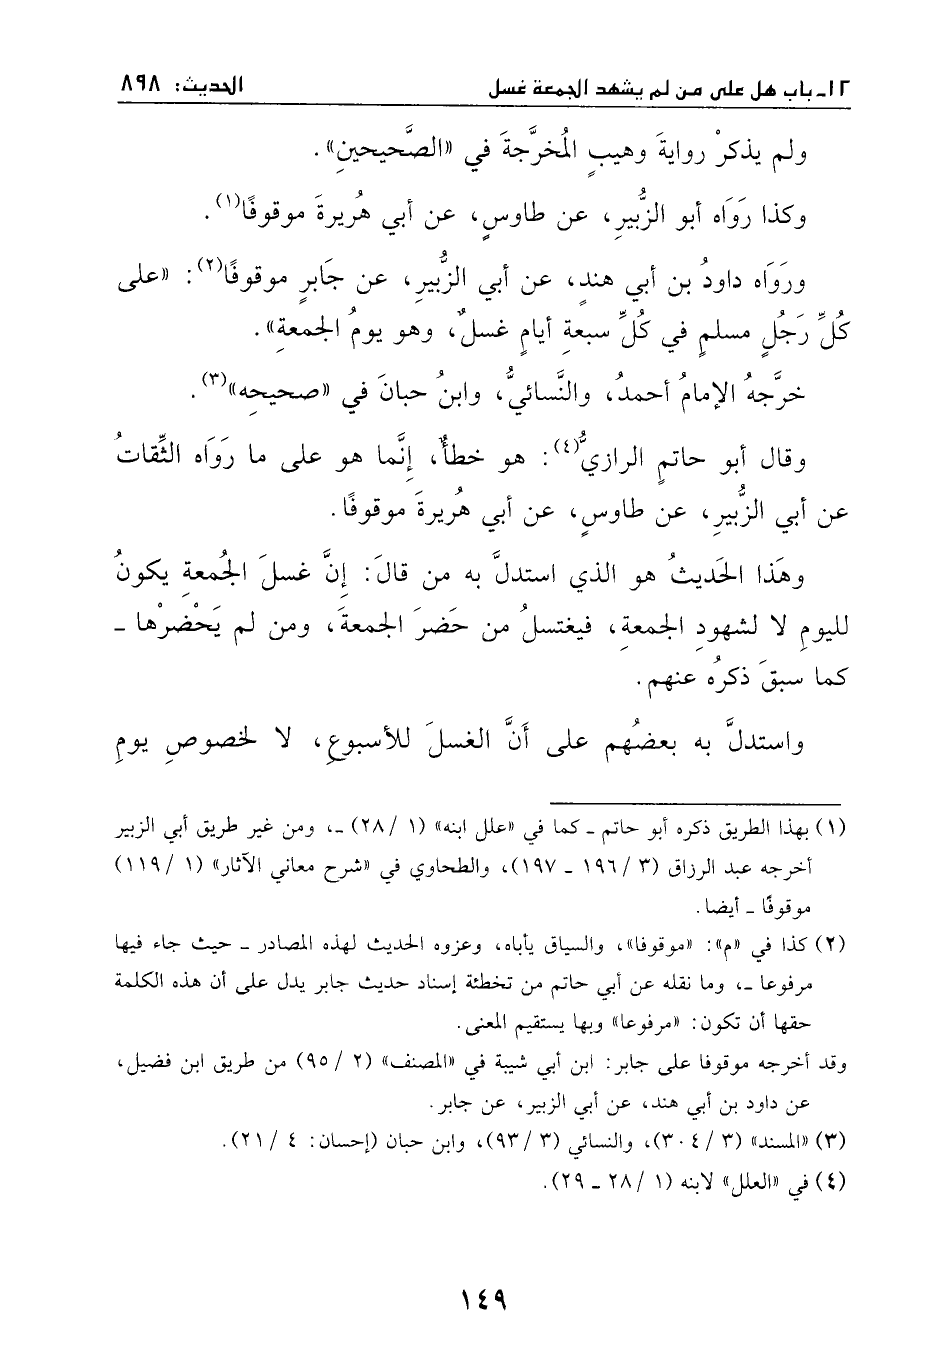 ١٢ـ باب هل على من لم يشهد الجمعة غسل
الحديث: ٨٩٨
ولم يذكرْ روايةَ وهيبٍ المُخرَّجةَ في «الصَّحيحينِ».
وكذا رَوَاه أبو الزُّبيرِ، عن طاوسٍ، عن أبي هُريرةَ موقوفًا(١).
ورَوَاه داودُ بن أبي هندٍ، عن أبي الزُّبيرِ، عن جَابرٍ موقوفًا(٢): «على
كُلِّ رَجُلٍ مسلمٍ في كُلِّ سبعةِ أيامٍ غسلٌ، وهو يومُ الجمعةِ».
خرَّجهُ الإمامُ أحمدُ، والنَّسائيُّ، وابنُ حبانَ في «صحيحِه»(٣).
وقال أبو حاتمٍ الرازيُّ(٤): هو خطأٌ، إنَّما هو على ما رَوَاه الثِّقاتُ
عن أبي الزُّبيرِ، عن طاوسٍ، عن أبي هُريرةَ موقوفًا.
وهَذا الحَديثُ هو الذي استدلَّ به من قالَ: إنَّ غسلَ الجُمعةِ يكونُ
لليومِ لا لشهودِ الجمعةِ، فيغتسلُ من حَضرَ الجمعةَ، ومن لم يَحْضرْها ـ
كما سبقَ ذكرُه عنهم.
واستدلَّ به بعضُهم على أَنَّ الغسلَ للأسبوعِ، لا لخصوصِ يومِ
(١) بهذا الطريق ذكره أبو حاتم ـ كما في «علل ابنه» (١ /٢٨) ـ، ومن غير طريق أبي الزبير
أخرجه عبد الرزاق (٣ /١٩٦ ـ ١٩٧)، والطحاوي في «شرح معاني الآثار» (١ /١١٩)
موقوفًا ـ أيضا.
(٢) كذا في «م»: «موقوفا»، والسياق يأباه، وعزوه الحديث لهذه المصادر ـ حيث جاء فيها
مرفوعا ـ، وما نقله عن أبي حاتم من تخطئة إسناد حديث جابر يدل على أن هذه الكلمة
حقها أن تكون: «مرفوعا» وبها يستقيم المعنى.
وقد أخرجه موقوفا على جابر: ابن أبي شيبة في «المصنف» (٢ /٩٥) من طريق ابن فضيل،
عن داود بن أبي هند، عن أبي الزبير، عن جابر.
(٣) «المسند» (٣ /٣٠٤)، والنسائي (٣ /٩٣)، وابن حبان (إحسان: ٤ /٢١).
(٤) في «العلل» لابنه (١ /٢٨ ـ ٢٩).
١٤٩